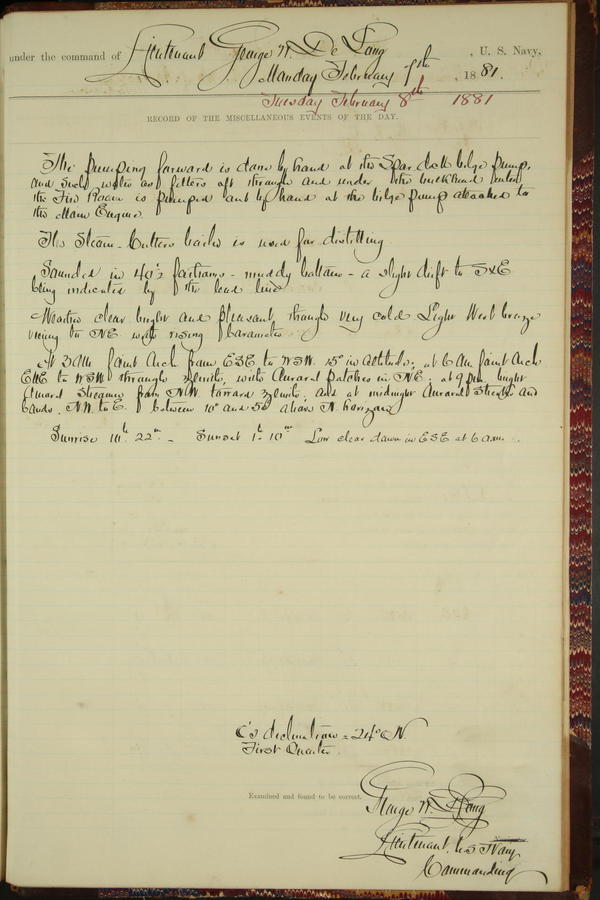 under the command of Lieutenant George W. De Long, U. S. Navy,
Monday February 7th, 1881.
Tuesday February 8th 1881
RECORD OF THE MISCELLANEOUS EVENTS OF THE DAY.
The pumping forward is done by hand at the Spar deck bilge pump,
and such water as filters aft through and under the bulkhead into
the Fire Room is pumped out by hand at the bilge pump attached to
the Main Engine.
The Steam-Cutters boiler is used for distilling
Sounded in 40½ fathoms - muddy bottom - a slight drift to SxE
being indicated by the lead line
Weather clear bright and pleasant though very cold Light West breeze
veering to NE with rising barometer
At 3 AM faint Arch from ESE to WSW 15° in altitude; at 6 AM faint Arch
ENE to WSW through zenith, with Auroral patches in NE; at 9 PM bright
Auroral Streamer from NW toward zenith; and at midnight Auroral Streaks and
bands, NW to E. between 10° and 50° above N. horizon
Sunrise 10h 22m - Sunset 1h 10m Low clear dawn in ESE at 6 am.
☾'s declination = 24° N
First Quarter
Examined and found to be correct.
George W. De Long
Lieutenant, U.S Navy
Commanding